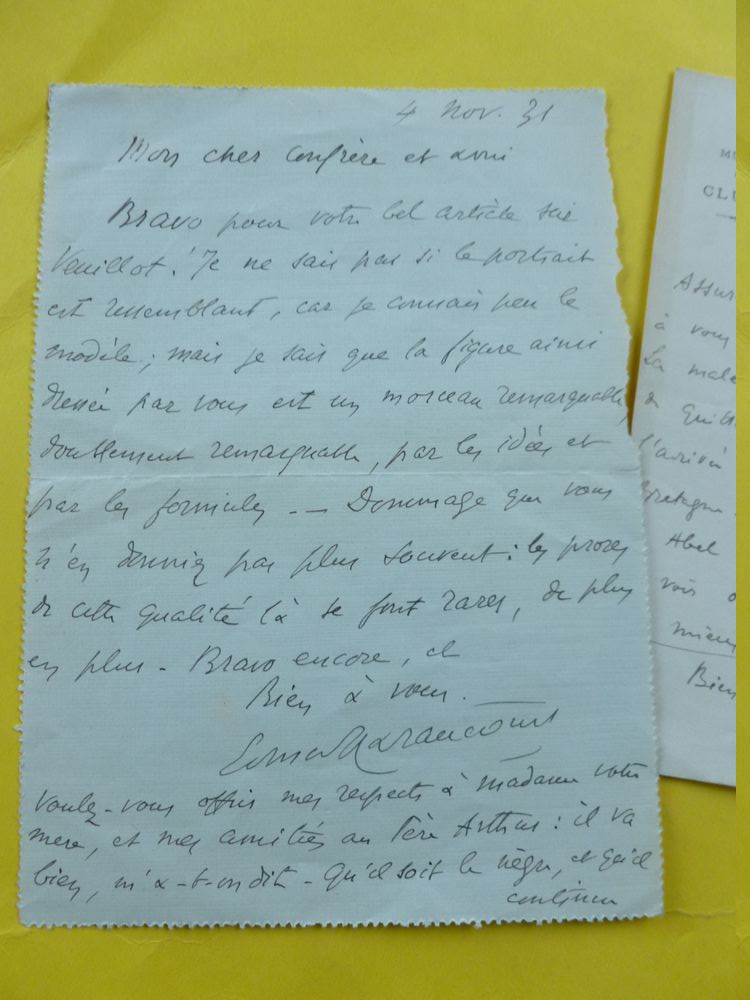 4 Nov. 31
Mon cher confrère et ami
Bravo pour votre bel article sur
Veuillot! Je ne sais pas si le portrait
est ressemblant, car je connais peu le
modèle; mais je sais que la figure ainsi
dressée par vous est un morceau remarquable,
doublement remarquable, par les idées et
par les formules -- Dommage que vous
n'en donniez pas plus souvent: les proses
de cette qualité là se font rares, de plus
en plus - Bravo encore, et
Bien à vous.
Haraucourt
Voulez-vous offrir mes respects à madame votre
mère, et mes amitiés au Père Arthur: il va
bien, m'a-t-on dit - Qu'il soit le nègre, et qu'il
continue
CLU
Assur
à vous
La male
de
l'arrivé
Bretagne
Abel
vois
mieux
Bien